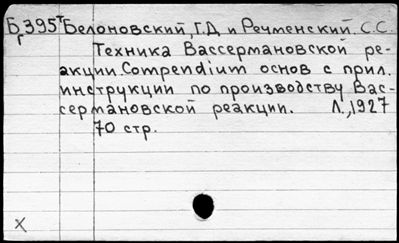 Б 395 Белоновский, Г.Д. и Речменский. С.С.
Г
Техника Вассермановской ре-
акции. Compendium основ с прил.
инструкции по производству Вас-
сермановской реакции. Л., 1927
70 стр.
X